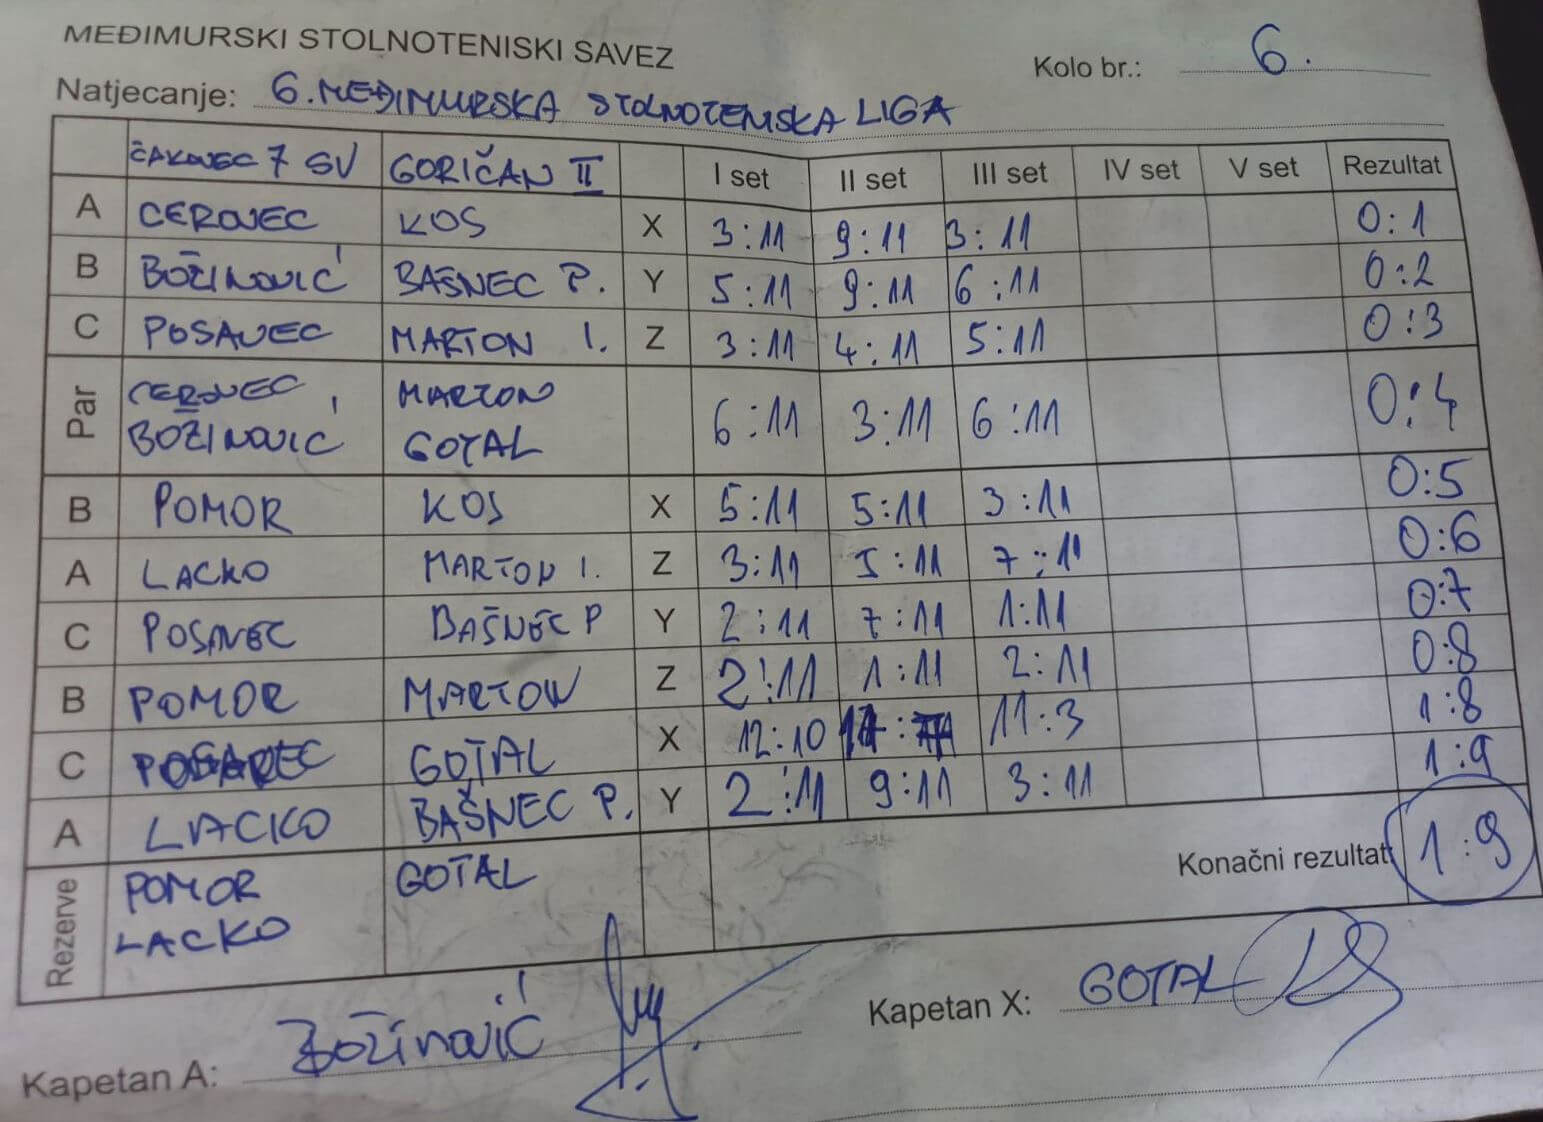 MEĐIMURSKI STOLNOTENISKI SAVEZ
Kolo br.: 6.
Natjecanje: 6. MEĐIMURSKA STOLNOTENISKA LIGA
ČAKOVEC 7 SV GORIČAN II I set II set III set IV set V set Rezultat
A CEROVEC KOS X 3:11 9:11 3:11 0:1
B BOŽINOVIĆ BAŠNEC P. Y 5:11 9:11 6:11 0:2
C POSAVEC MARTON I. Z 3:11 4:11 5:11 0:3
Par CEROVEC MARTON 6:11 3:11 6:11 0:4
BOŽINOVIĆ GOTAL
B POMOR KOS X 5:11 5:11 3:11 0:5
A LACKO MARTON I. Z 3:11 5:11 7:11 0:6
C POSAVEC BAŠNEC P Y 2:11 7:11 1:11 0:7
B POMOR MARTON Z 2:11 1:11 2:11 0:8
C POSAVEC GOTAL X 12:10 11:3 1:8
A LACKO BAŠNEC P. Y 2:11 9:11 3:11 1:9
Rezerve POMOR GOTAL Konačni rezultat: 1:9
LACKO
Kapetan A: BOŽINOVIĆ Kapetan X: GOTAL